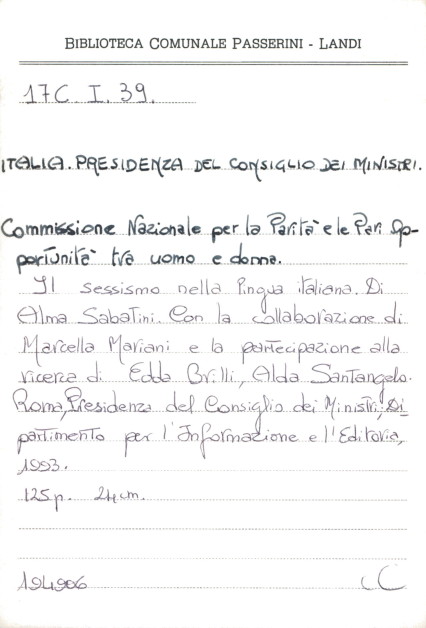 BIBLIOTECA COMUNALE PASSERINI - LANDI
17C. I. 39.
ITALIA. PRESIDENZA DEL CONSIGLIO DEI MINISTRI.
Commissione Nazionale per la Parità e le Pari Op-
portunità tra uomo e donna.
Il sessismo nella lingua italiana. Di
Alma Sabatini. Con la collaborazione di
Marcella Mariani e la partecipazione alla
ricerca di Edda Brilli, Alda Santangelo.
Roma, Presidenza del Consiglio dei Ministri, Di
partimento per l'Informazione e l'Editoria,
1993.
125 p. 24 cm.
194906